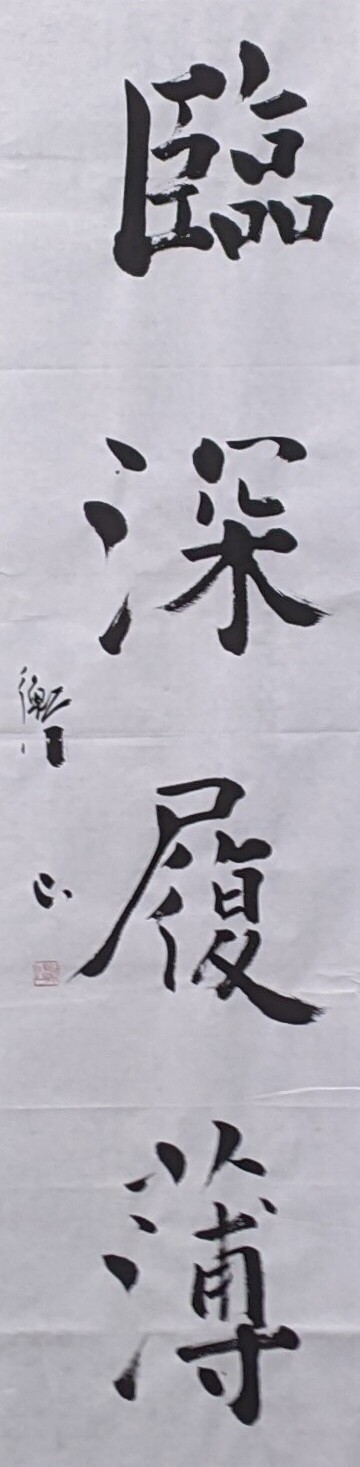 臨深履薄